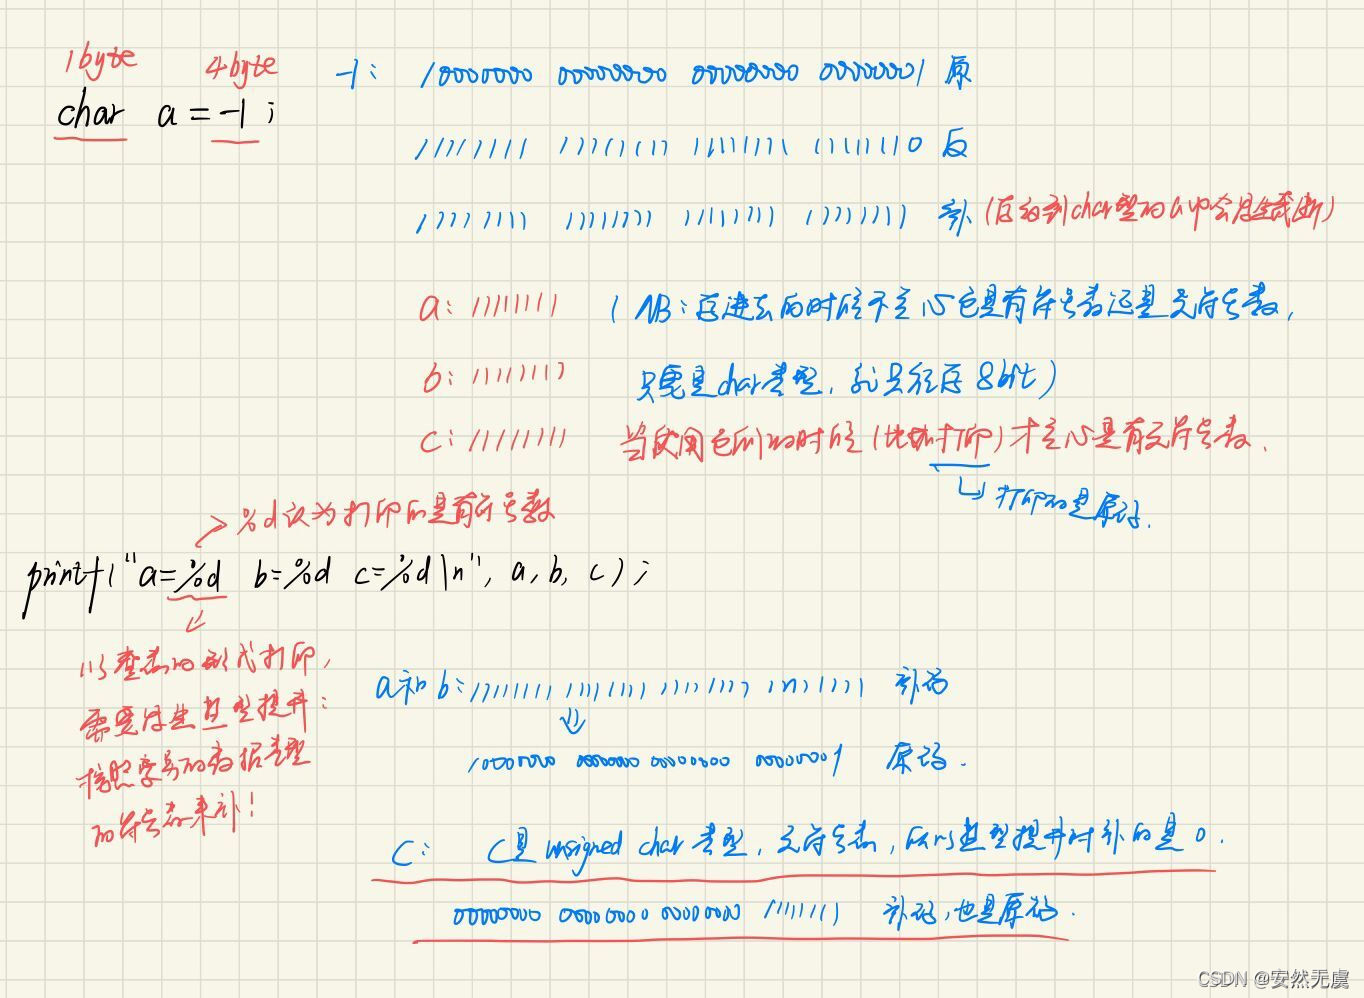 1byte 4byte
char a = -1;
-1: 10000000 00000000 00000000 00000001 原
11111111 11111111 11111111 11111110 反
11111111 11111111 11111111 11111111 补 (存的到char型的a中会发生截断)
a: 11111111 (NB:存进去的时候不关心它是有符号数还是无符号数,
b: 11111111 只要是char类型,就只能存8bit)
c: 11111111 当使用它们的时候(比如打印)才关心是有无符号数.
打印的是原码.
%d认为打印的是有符号数
printf("a=%d b=%d c=%d\n", a, b, c);
以整数的形式打印,
需要发生整型提升:
按照变量的数据类型
的符号数来补!
a和b: 11111111 11111111 11111111 11111111 补码
10000000 00000000 00000000 00000001 原码.
C: C是unsigned char类型,无符号数,所以整型提升时补的是0.
00000000 00000000 00000000 11111111 补码,也是原码.
CSDN @安然无虞